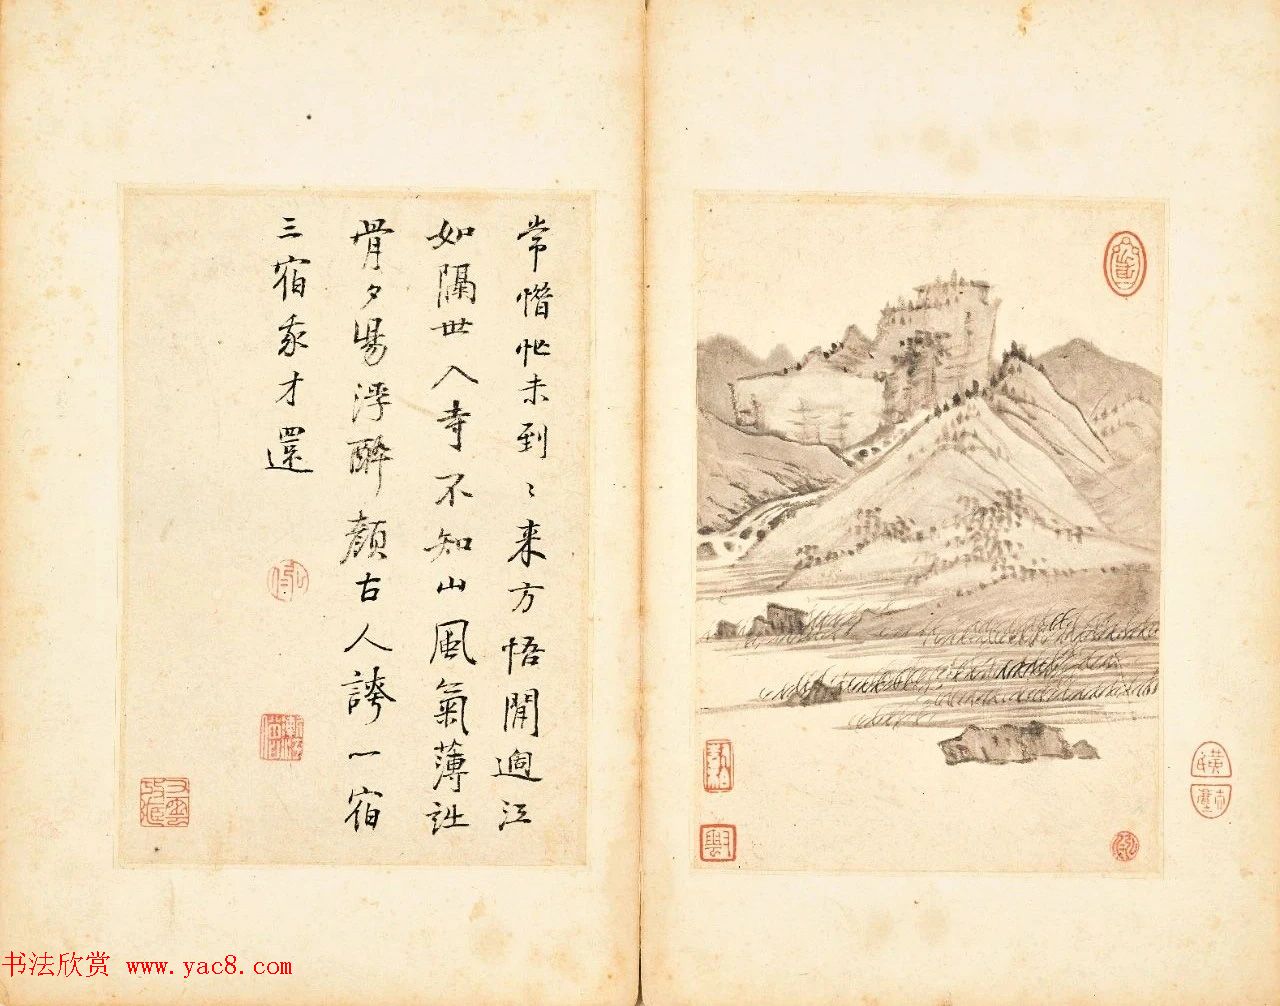 常惜忙未到〻来方悟閒過江
如隔世入寺不知山風氣薄詎
骨夕陽浮醉顏古人誇一宿
三宿我才還
书法欣赏 www.yac8.com